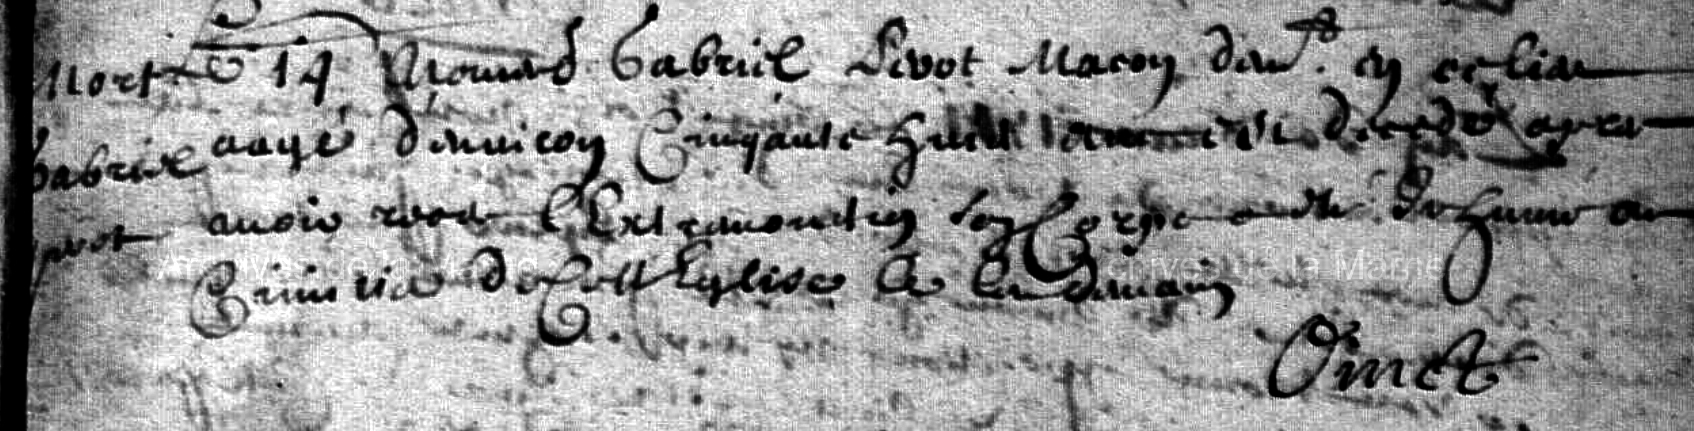 Mort Le 14 Mourut Gabriel Pivot Macon dem.t en ce lieu
Gabriel aagé d'enuiron Cinquante huict decedé apres
pivot auoir receu l'Extremonction son Corps a esté Inhumé au
Cimitiere de Cette Eglise Le lendemain
Oinet